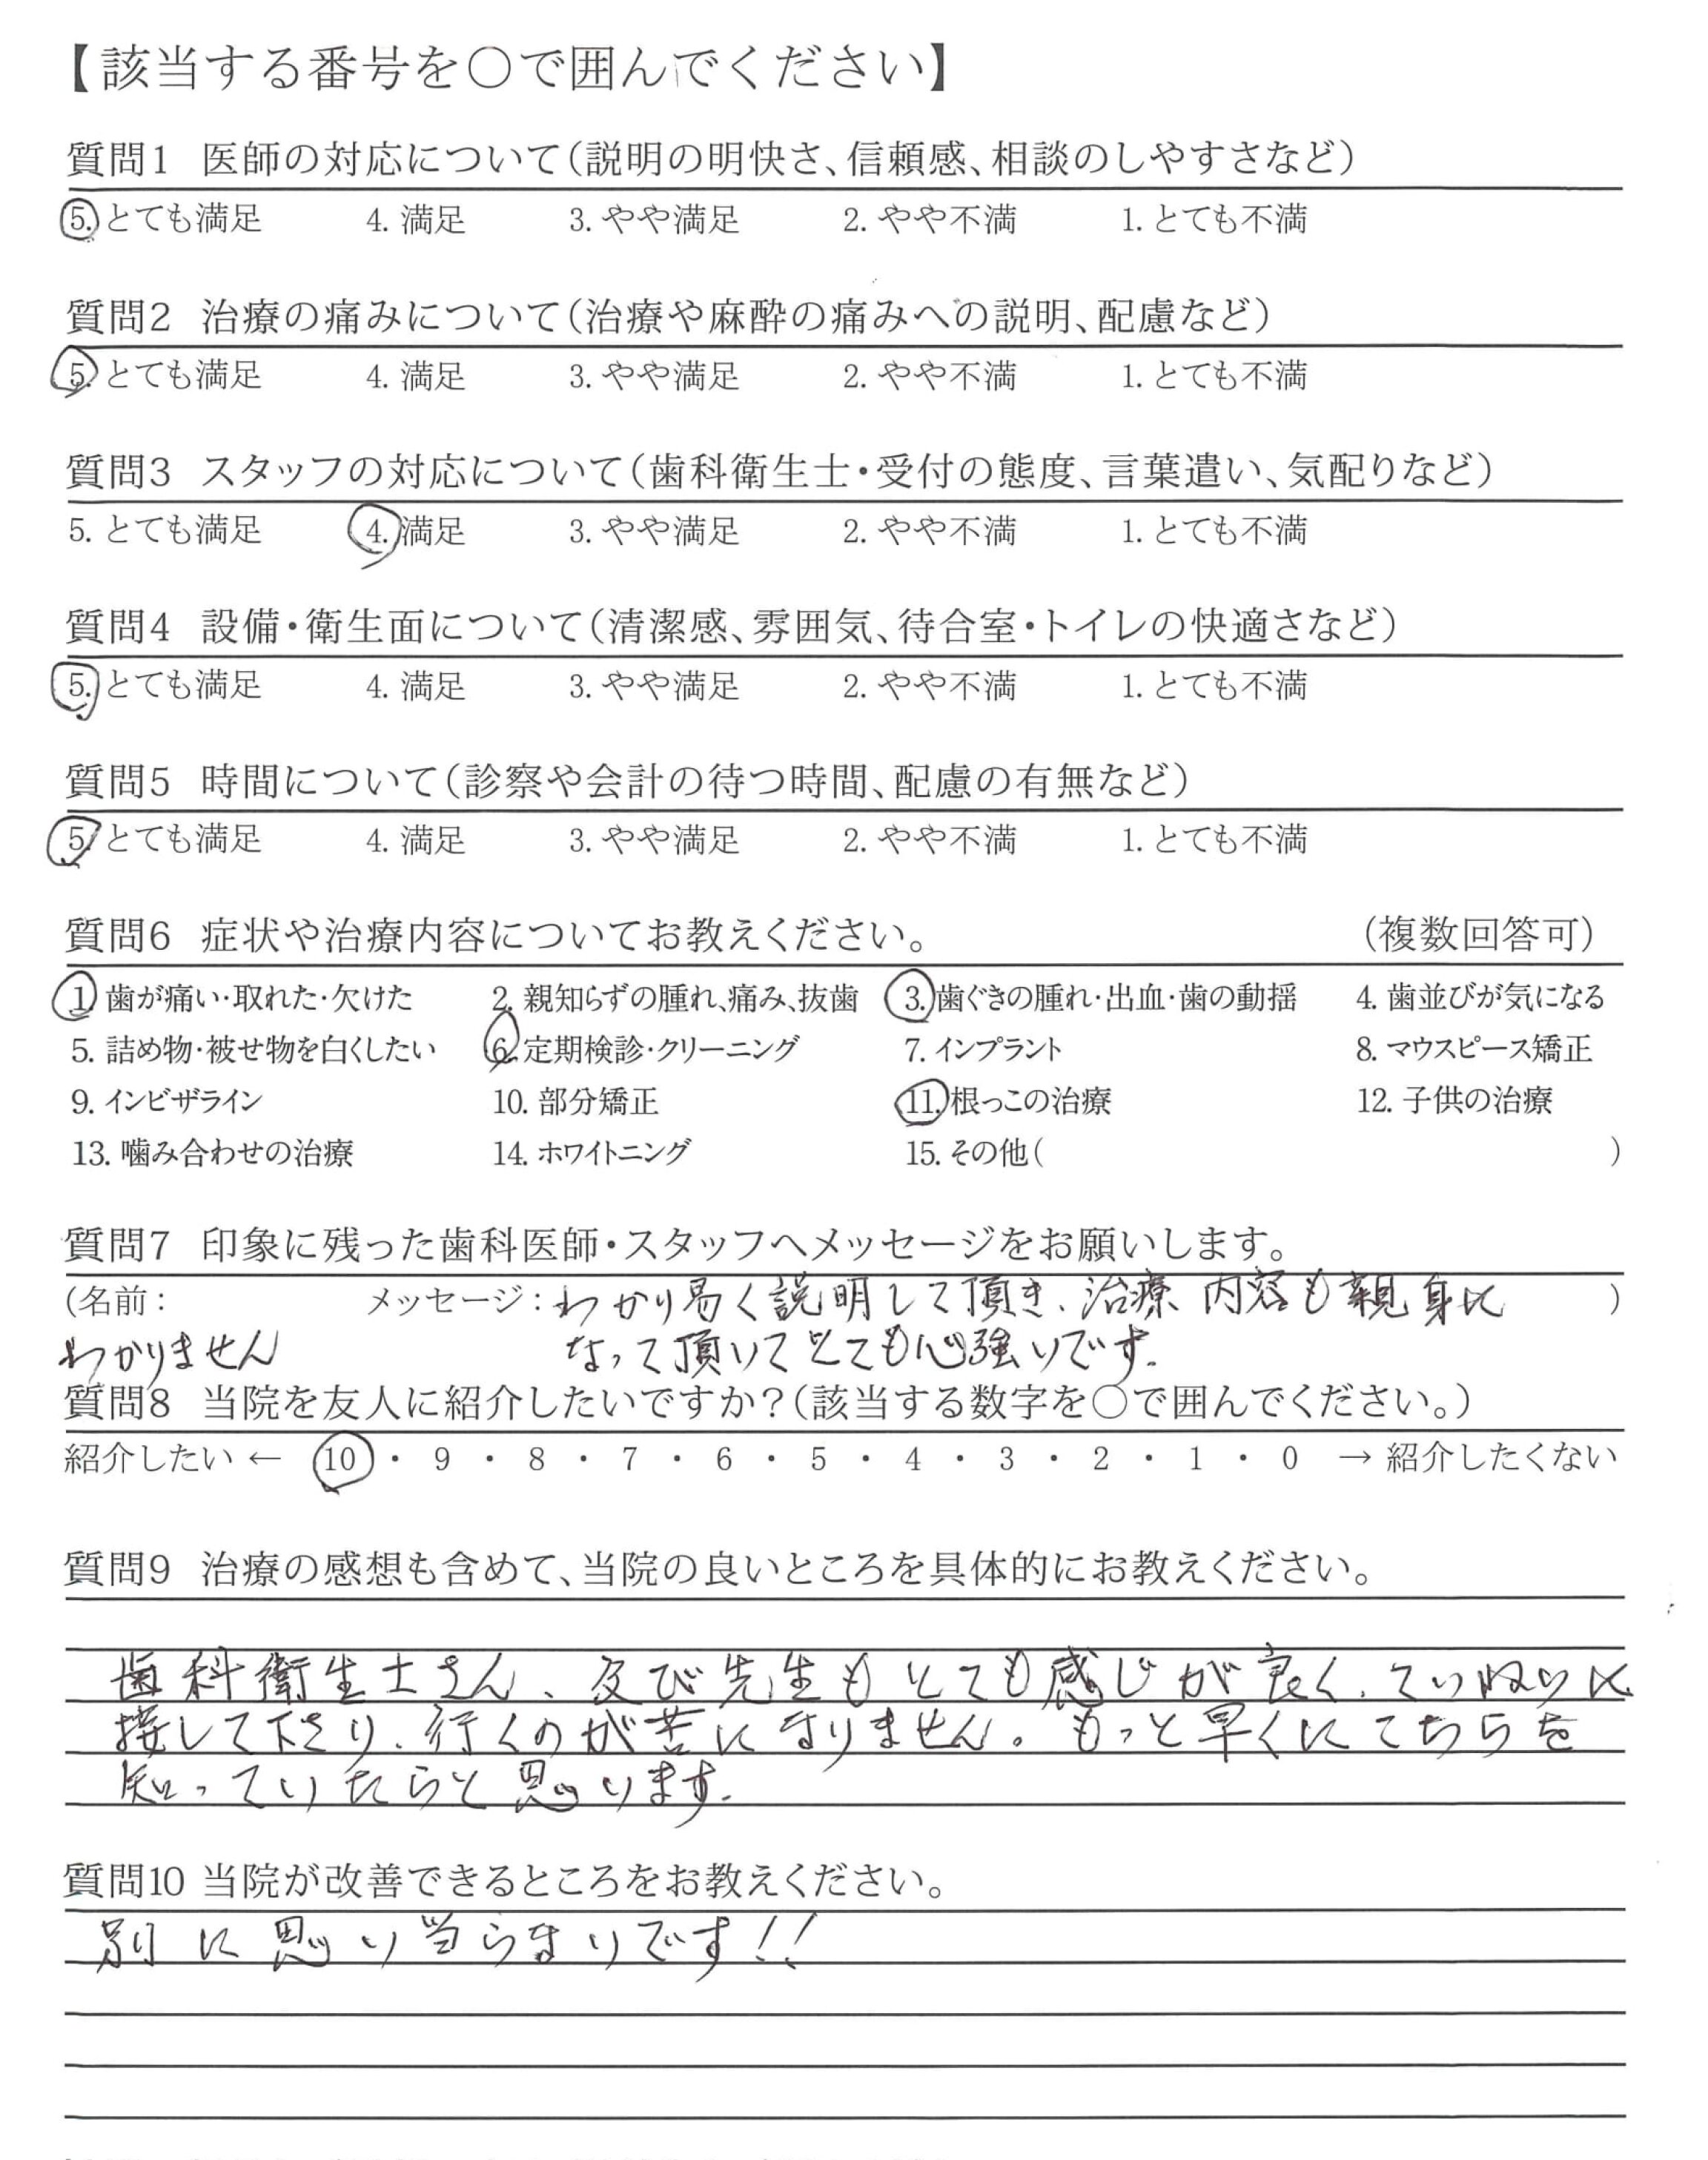 【該当する番号を〇で囲んでください】
質問1 医師の対応について(説明の明快さ、信頼感、相談のしやすさなど)
5. とても満足 4. 満足 3. やや満足 2. やや不満 1. とても不満
質問2 治療の痛みについて(治療や麻酔の痛みへの説明、配慮など)
5. とても満足 4. 満足 3. やや満足 2. やや不満 1. とても不満
質問3 スタッフの対応について(歯科衛生士・受付の態度、言葉遣い、気配りなど)
5. とても満足 4. 満足 3. やや満足 2. やや不満 1. とても不満
質問4 設備・衛生面について(清潔感、雰囲気、待合室・トイレの快適さなど)
5. とても満足 4. 満足 3. やや満足 2. やや不満 1. とても不満
質問5 時間について(診察や会計の待つ時間、配慮の有無など)
5. とても満足 4. 満足 3. やや満足 2. やや不満 1. とても不満
質問6 症状や治療内容についてお教えください。 (複数回答可)
1. 歯が痛い・取れた・欠けた 2. 親知らずの腫れ、痛み、抜歯 3. 歯ぐきの腫れ・出血・歯の動揺 4. 歯並びが気になる
5. 詰め物・被せ物を白くしたい 6. 定期検診・クリーニング 7. インプラント 8. マウスピース矯正
9. インビザライン 10. 部分矯正 11. 根っこの治療 12. 子供の治療
13. 噛み合わせの治療 14. ホワイトニング 15. その他( )
質問7 印象に残った歯科医師・スタッフへメッセージをお願いします。
(名前: メッセージ:わかり易く説明して頂き、治療内容も親身に )
わかりません なって頂いてとても心強いです。
質問8 当院を友人に紹介したいですか?(該当する数字を〇で囲んでください。)
紹介したい ← 10 ・ 9 ・ 8 ・ 7 ・ 6 ・ 5 ・ 4 ・ 3 ・ 2 ・ 1 ・ 0 → 紹介したくない
質問9 治療の感想も含めて、当院の良いところを具体的にお教えください。
歯科衛生士さん、及び先生もとても感じが良く、ていねいに
接して下さり、行くのが苦になりません。もっと早くにこちらを
知っていたらと思います。
質問10 当院が改善できるところをお教えください。
別に思い当らないです!!